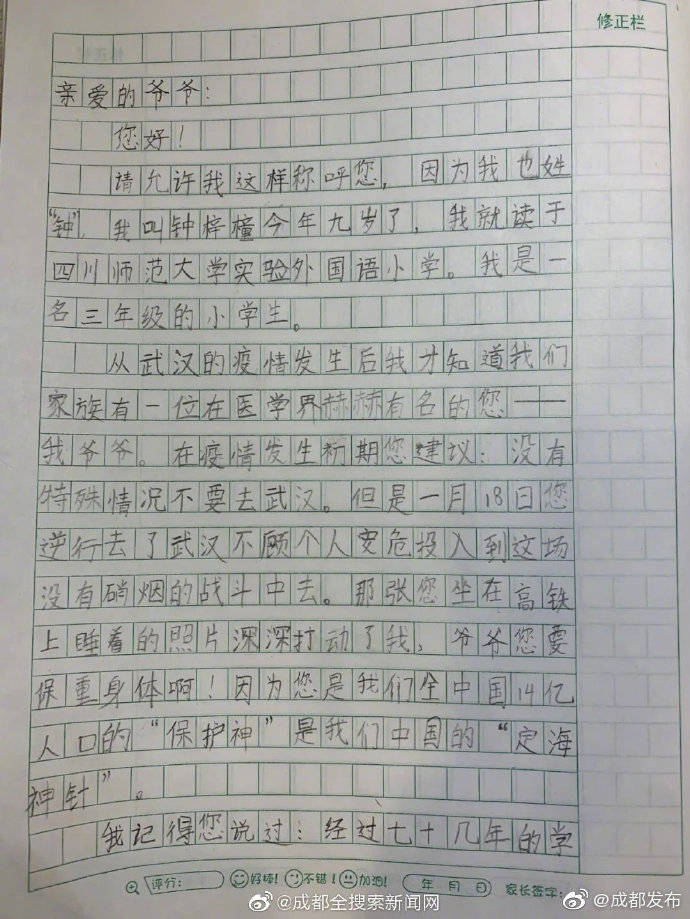 修正栏
亲爱的爷爷：
您好！
请允许我这样称呼您，因为我也姓
“钟”，我叫钟梓橦今年九岁了，我就读于
四川师范大学实验外国语小学。我是一
名三年级的小学生。
从武汉的疫情发生后我才知道我们
家族有一位在医学界赫赫有名的您——
我爷爷。在疫情发生初期您建议：没有
特殊情况不要去武汉。但是一月18日您
逆行去了武汉不顾个人安危投入到这场
没有硝烟的战斗中去。那张您坐在高铁
上睡着的照片深深打动了我，爷爷您要
保重身体啊！因为您是我们全中国14亿
人口的“保护神”是我们中国的“定海
神针”。
我记得您说过：经过七十几年的学
评分： 好棒！ 不错！ 加油！ 年 月 日 家长签字：
@成都全搜索新闻网 @成都发布